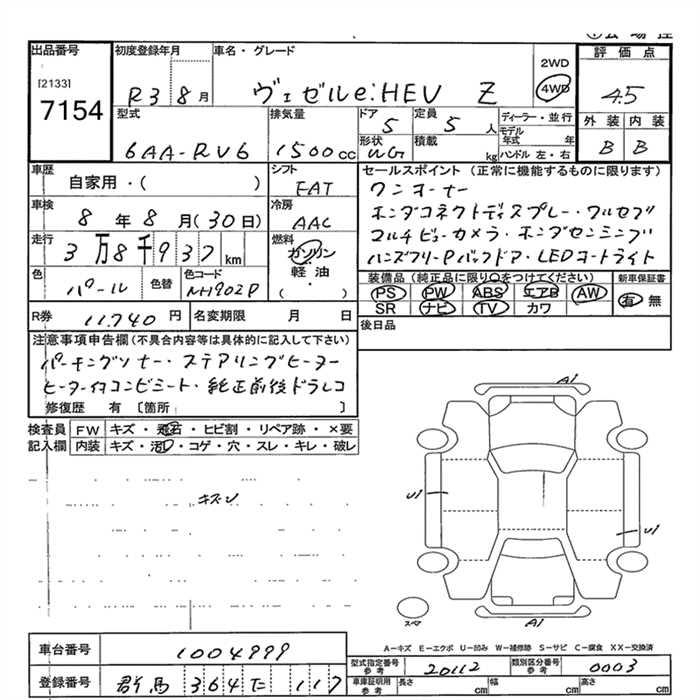 出品番号 初度登録年月 車名・グレード 評価点
[2133]
7154
R3 8月 ヴェゼルe:HEV Z 2WD 4WD 4.5
型式 排気量 ドア 定員 ディーラー・並行 外装 内装
6AA-RV6 1500cc 5 5人 モデル年式 年 B B
形状 積載 ハンドル 左・右
WG kg
車歴 自家用・( ) シフト FAT セールスポイント(正常に機能するものに限ります)
車検 8年8月(30日) 冷房 AAC ワンオーナー
走行 3万8千937km 燃料 ガソリン 軽油 ・( ) ホンダコネクトディスプレー・フルセグ
マルチビューカメラ・ホンダセンシング
ハンズフリーPバックドア・LEDオートライト
色 パール 色替 色コード NH902P
装備品(純正品に限り○をつけてください) 新車保証書
PS PW ABS エアB AW 有 無
SR ナビ TV カワ
R券 11.740円 名変期限 月 日 後日品
注意事項申告欄(不具合内容等は具体的に記入して下さい)
パーキングソナー・ステアリングヒーター
ヒーター付コンビシート・純正前後ドラレコ
修復歴 有 [箇所 ]
検査員 FW キズ・飛石・ヒビ割・リペア跡・×要
記入欄 内装 キズ・汚・コゲ・穴・スレ・キレ・破レ
キズ
A1
U1
U1
スペア
A1
A-キズ E-エクボ U-凹み W-補修跡 S-サビ C-腐食 XX-交換済
車台番号 1004999
型式指定番号 参考 20112 類別区分番号 参考 0003
登録番号 群馬 364 た 117
車庫証明用 参考 長さ cm 幅 cm 高さ cm